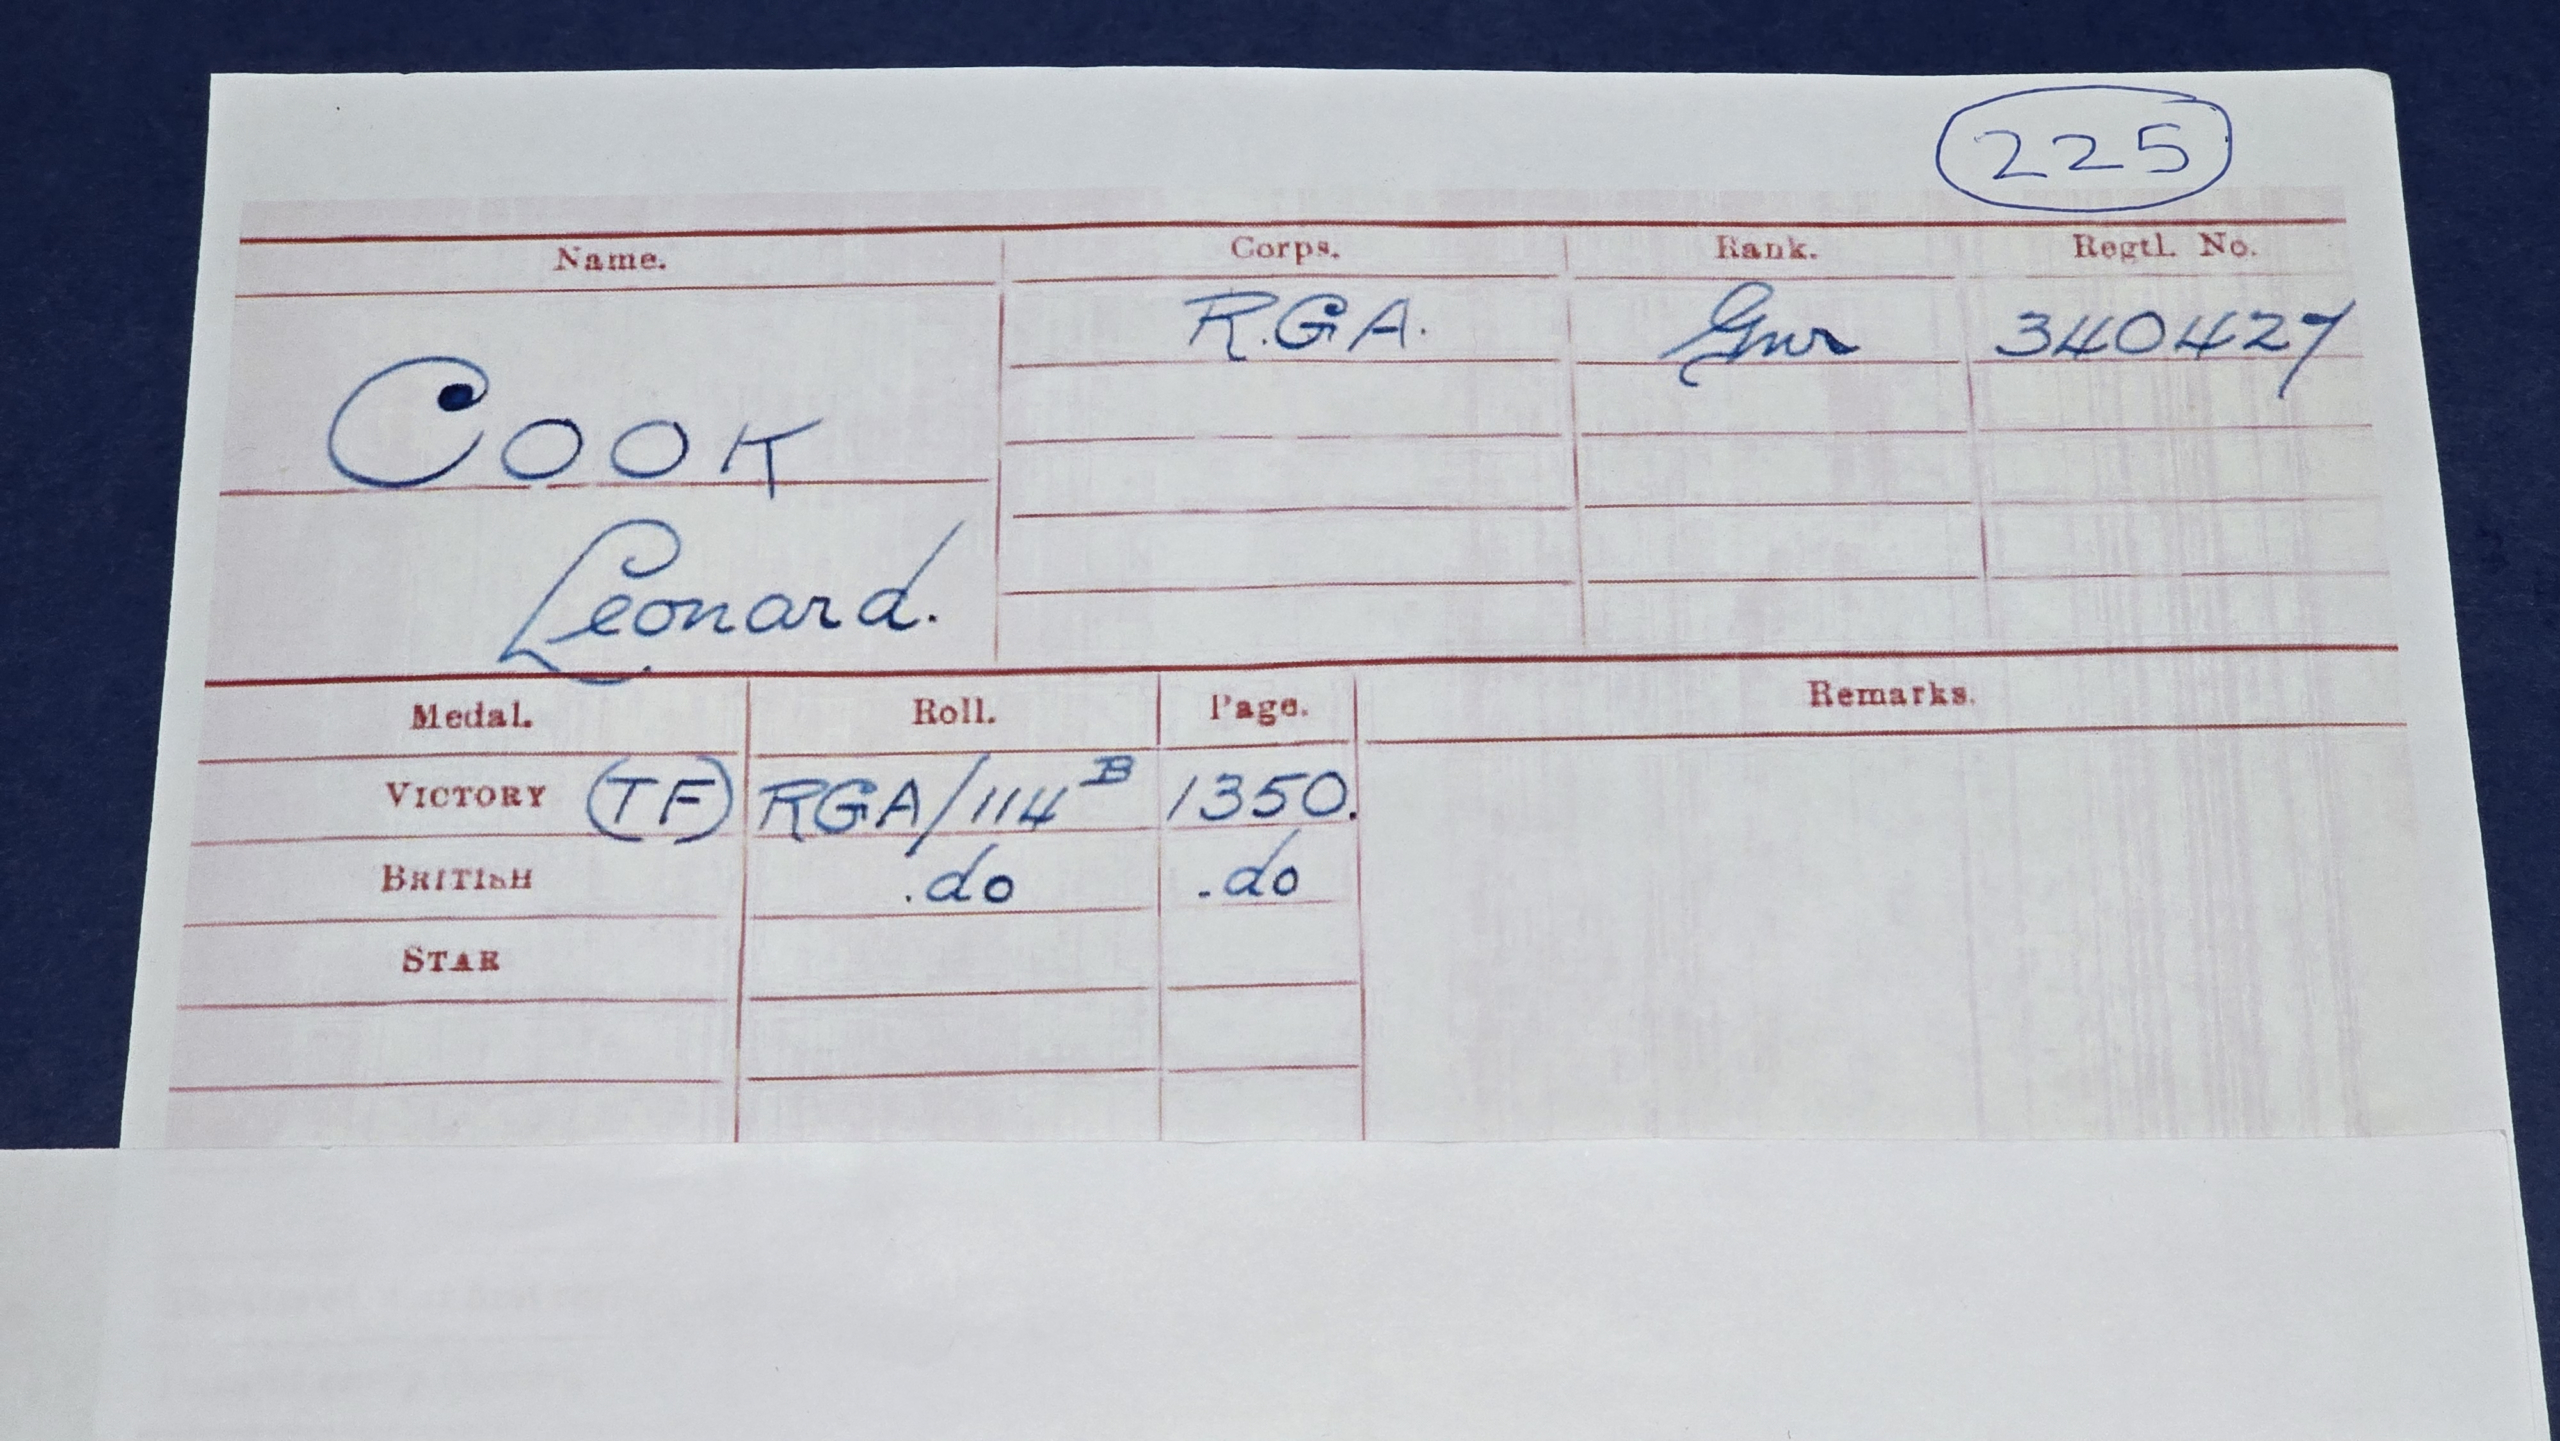 225
Name. Corps. Rank. Regtl. No.
R.G.A. Gnr 340427
COOK
Leonard.
Medal. Roll. Page. Remarks.
VICTORY (TF) RGA/114B 1350.
BRITISH .do .do
STAR